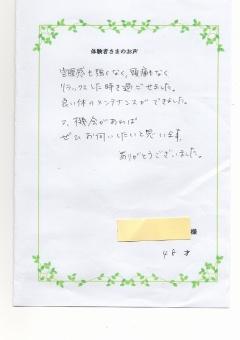 体験者さまのお声
空腹感も強くなく、頭痛もなく
リラックスした時を過ごせました。
良い体のメンテナンスができました。
又、機会があれば
ぜひお伺いしたいと思います。
ありがとうございました。
様
48才